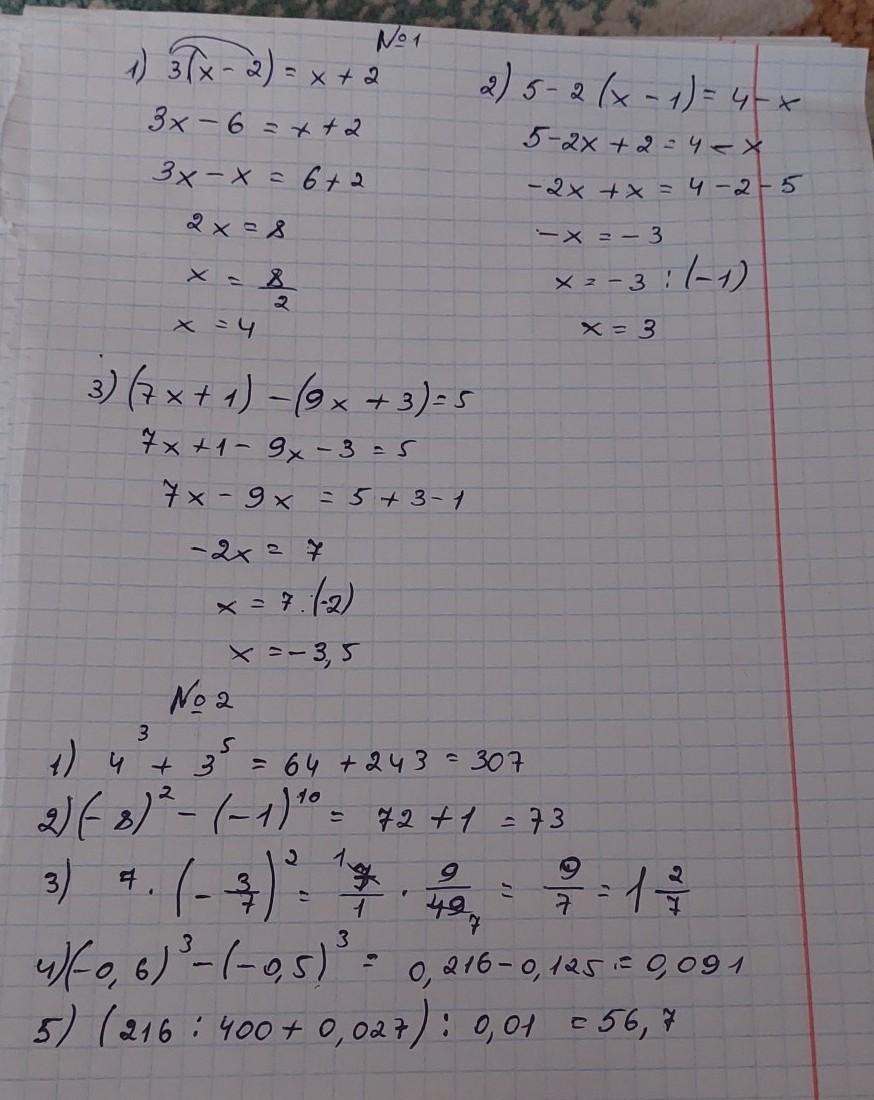 №1
1) 3(x - 2) = x + 2
3x - 6 = x + 2
3x - x = 6 + 2
2x = 8
x = 8/2
x = 4
2) 5 - 2 (x - 1) = 4 - x
5 - 2x + 2 = 4 - x
-2x + x = 4 - 2 - 5
-x = -3
x = -3 : (-1)
x = 3
3) (7x + 1) - (9x + 3) = 5
7x + 1 - 9x - 3 = 5
7x - 9x = 5 + 3 - 1
-2x = 7
x = 7 : (-2)
x = -3,5
№2
1) 4³ + 3⁵ = 64 + 243 = 307
2) (-8)² - (-1)¹⁰ = 72 + 1 = 73
3) 7 · (-3/7)² = ¹7/1 · 9/49₇ = 9/7 = 1 2/7
4) (-0,6)³ - (-0,5)³ = 0,216 - 0,125 = 0,091
5) (216 : 400 + 0,027) : 0,01 = 56,7